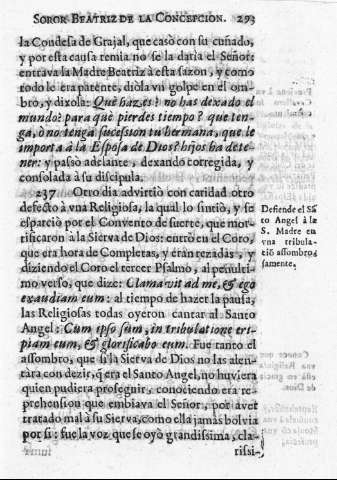 SOROR BEATRIZ DE LA CONCEPCION. 293
la Condesa de Grajal, que casò con su cuñado,
y por esta causa temia no se la daria el Señor:
entrava la Madre Beatriz à esta sazon, y como
todo le era patente, diòla vn golpe en el om-
bro, y dixola: Què haz.es? no has dexado el
mundo? para què pierdes tiempo? que ten-
ga, ò no tenga sucession tu hermana, que le
importa à la Esposa de Dios? hijos ha de te-
ner: y passò adelante, dexando corregida, y
consolada à su discipula.
237 Otro dia advirtiò con caridad otro
defecto à vna Religiosa, la qual lo sintiò, y se
esparciò por el Convento de suerte, que mor-
tificaron à la Sierva de Dios: entrò en el Coro,
que era hora de Completas, y eran rezadas, y
diziendo el Coro el tercer Psalmo, al penulti-
mo verso, que dize: Clamavit ad me, & ego
exaudiam eum: al tiempo de hazer la pausa,
las Religiosas todas oyeron cantar al Santo
Angel: Cum ipso sum, in tribulatione eri-
piam eum, & glorificabo eum. Fue tanto el
assombro, que si la Sierva de Dios no las alen-
tàra con dezir, q̃ era el Santo Angel, no huviera
quien pudiera proseguir, conociendo era re-
prehension que embiava el Señor, por aver
tratado mal à su Sierva, como ella jamàs bolvia
por si: fue la voz que se oyò grandissima, cla-
rissi-
Defiende el Sã
to Angel à la
S. Madre en
vna tribula-
ciõ assombro-
samente.